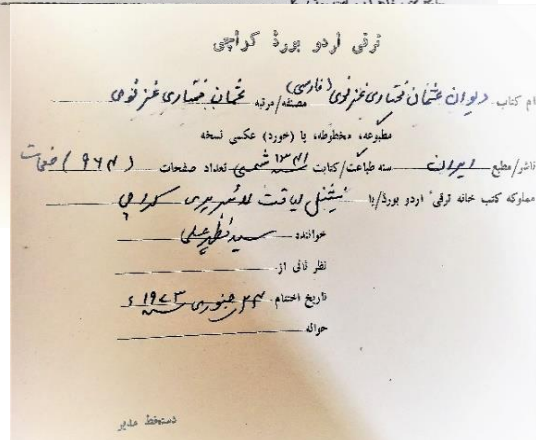 ترقی اردو بورڈ کراچی
نام کتاب دیوان عثمان مختاری غزنوی (فارسی) مصنفہ/مرتبہ عثمان مختاری غزنوی
مطبوعہ، مخطوطہ، یا (خورد) عکسی نسخہ
ناشر/مطبع ایران سنہ طباعت/کتابت ۱۳۴۱ شمسی تعداد صفحات (۹۶۴) صفحات
مملوکہ کتب خانہ ترقیٔ اردو بورڈ/یا نیشنل لیاقت لائبریری کراچی
خوانندہ سید
نظر ثانی از
تاریخ اختتام ۲۴ جنوری سنہ ۱۹۷۳ ء
حوالہ
دستخط مدیر